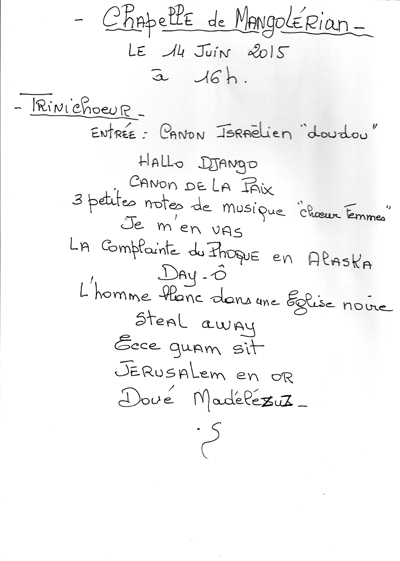 - Chapelle de Mangolérian -
LE 14 JUIN 2015
à 16h.
- TRINICHOEUR -
ENTRÉE : CANON ISRAËLIEN "doudou"
HALLO DJANGO
CANON DE LA PAIX
3 petites notes de musique "choeur Femmes"
Je m'en vas
LA Complainte du Phoque en ALASKA
DAY-Ô
L'homme blanc dans une Eglise noire
STEAL away
Ecce quam sit
JERUSALem en OR
Doué Madélézuz -